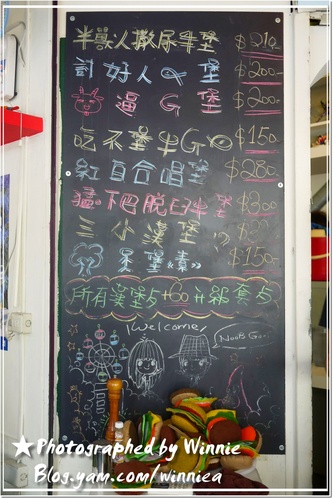 半獸人撒尿牛堡 $210-
討好人堡 $200-
逼G堡 $200-
吃不堡牛G $150-
紅白合唱堡 $280-
猛下巴脫臼 堡 $300
三小漢堡
堡"素" $150-
所有漢堡 +60 升級套
Welcome!
★Photographed by Winnie
Blog.yam.com/winniea